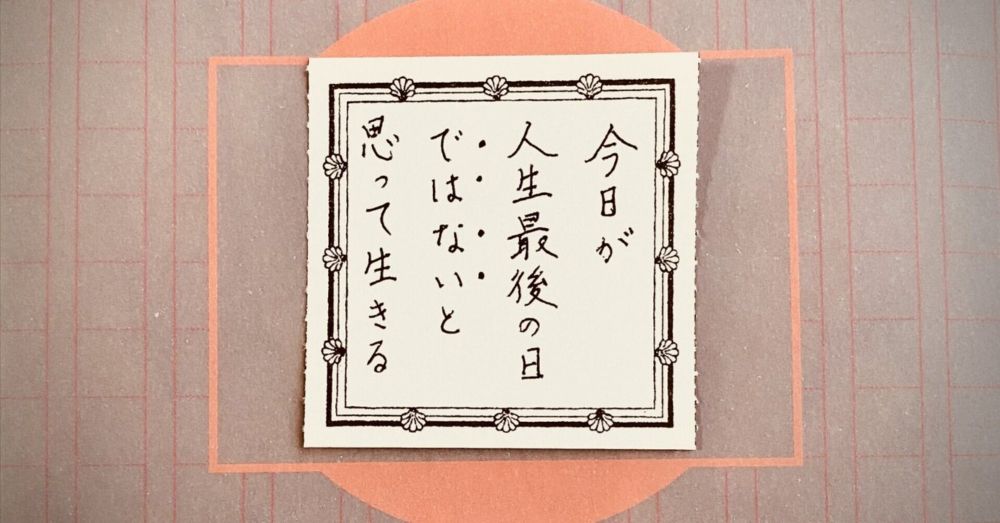 今日が
人生最後の日
ではないと
思って生きる